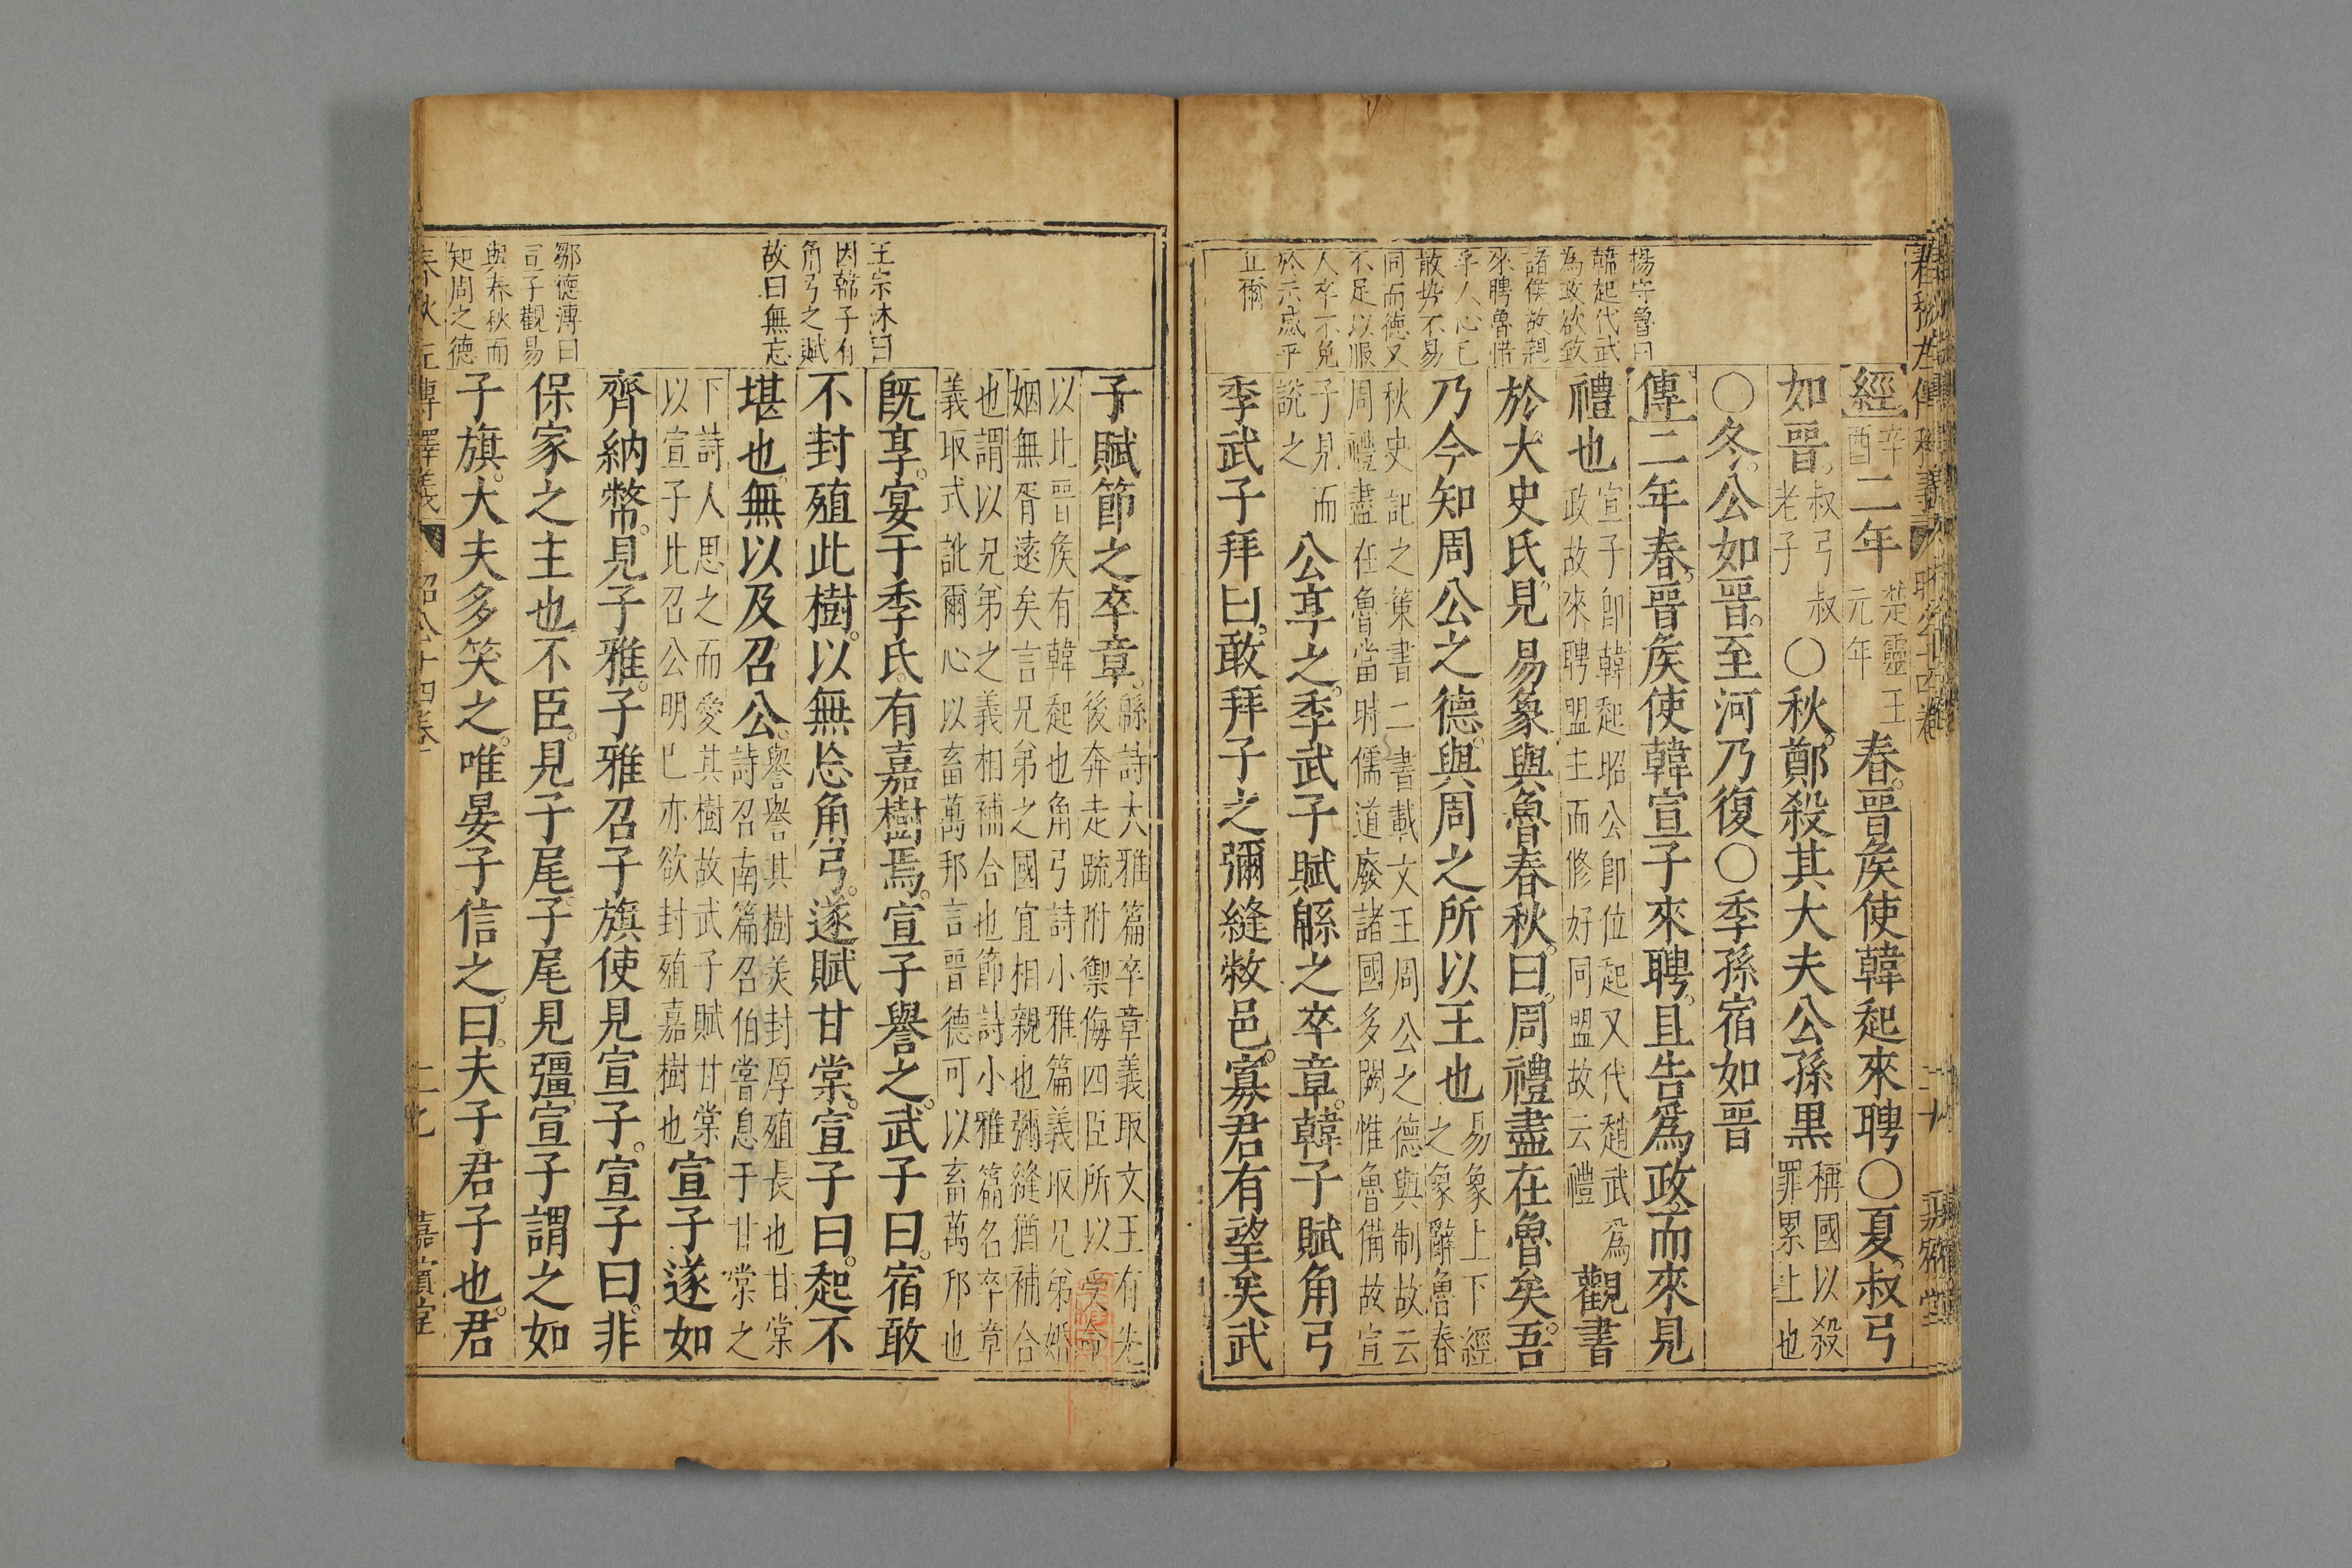 經辛酉二年楚靈王元年春晉矦使韓起來聘○夏叔弓
如晉叔弓叔老子○秋鄭殺其大夫公孫黑稱國以殺罪累上也
○冬公如晉至河乃復○季孫宿如晉
傳二年春晉矦使韓宣子來聘且告爲政而來見
禮也宣子卽韓起昭公卽位起又代趙武爲政故來聘盟主而修好同盟故云禮觀書
於大史氏見易象與魯春秋曰周禮盡在魯矣吾
乃今知周公之德與周之所以王也易象上下經之象辭魯春
秋史記之策書二書載文王周公之德與制故云周禮盡在魯當時儒道廢諸國多闕惟魯備故宣
子見而說之公享之季武子賦緜之卒章韓子賦角弓
季武子拜曰敢拜子之彌縫敝邑寡君有望矣武
楊守魯曰
韓起代武
為政欲致
諸侯故親
來聘魯惜
乎人心已
散势不易
同而德又
不足以服
人卒不免
於示威平
丘爾
子賦節之卒章緜詩大雅篇卒章義取文王有先後奔走疏附禦侮四臣所以
以比晉矦有韓起也角弓詩小雅篇義取兄弟婚姻無胥遠矣言兄弟之國宜相親也彌縫猶補合
也謂以兄弟之義相補合也節詩小雅篇名卒章義取式訛爾心以畜萬邦言晉德可以畜萬邦也
既享宴于季氏有嘉樹焉宣子譽之武子曰宿敢
不封殖此樹以無忘角弓遂賦甘棠宣子曰起不
堪也無以及召公譽譽其樹美封厚殖長也甘棠詩召南篇召伯嘗息于甘棠之
下詩人思之而愛其樹故武子賦甘棠以宣子比召公明已亦欲封殖嘉樹也宣子遂如
齊納幣見子雅子雅召子旗使見宣子宣子曰非
保家之主也不臣見子尾子尾見彊宣子謂之如
子旗大夫多笑之唯晏子信之曰夫子君子也君
王宗沐曰
因韓子有
角弓之賦
故曰無忘
鄒德溥曰
宣子觀易
與春秋而
知周之德
春秋左傳釋義
昭公十四卷
嘉賓堂